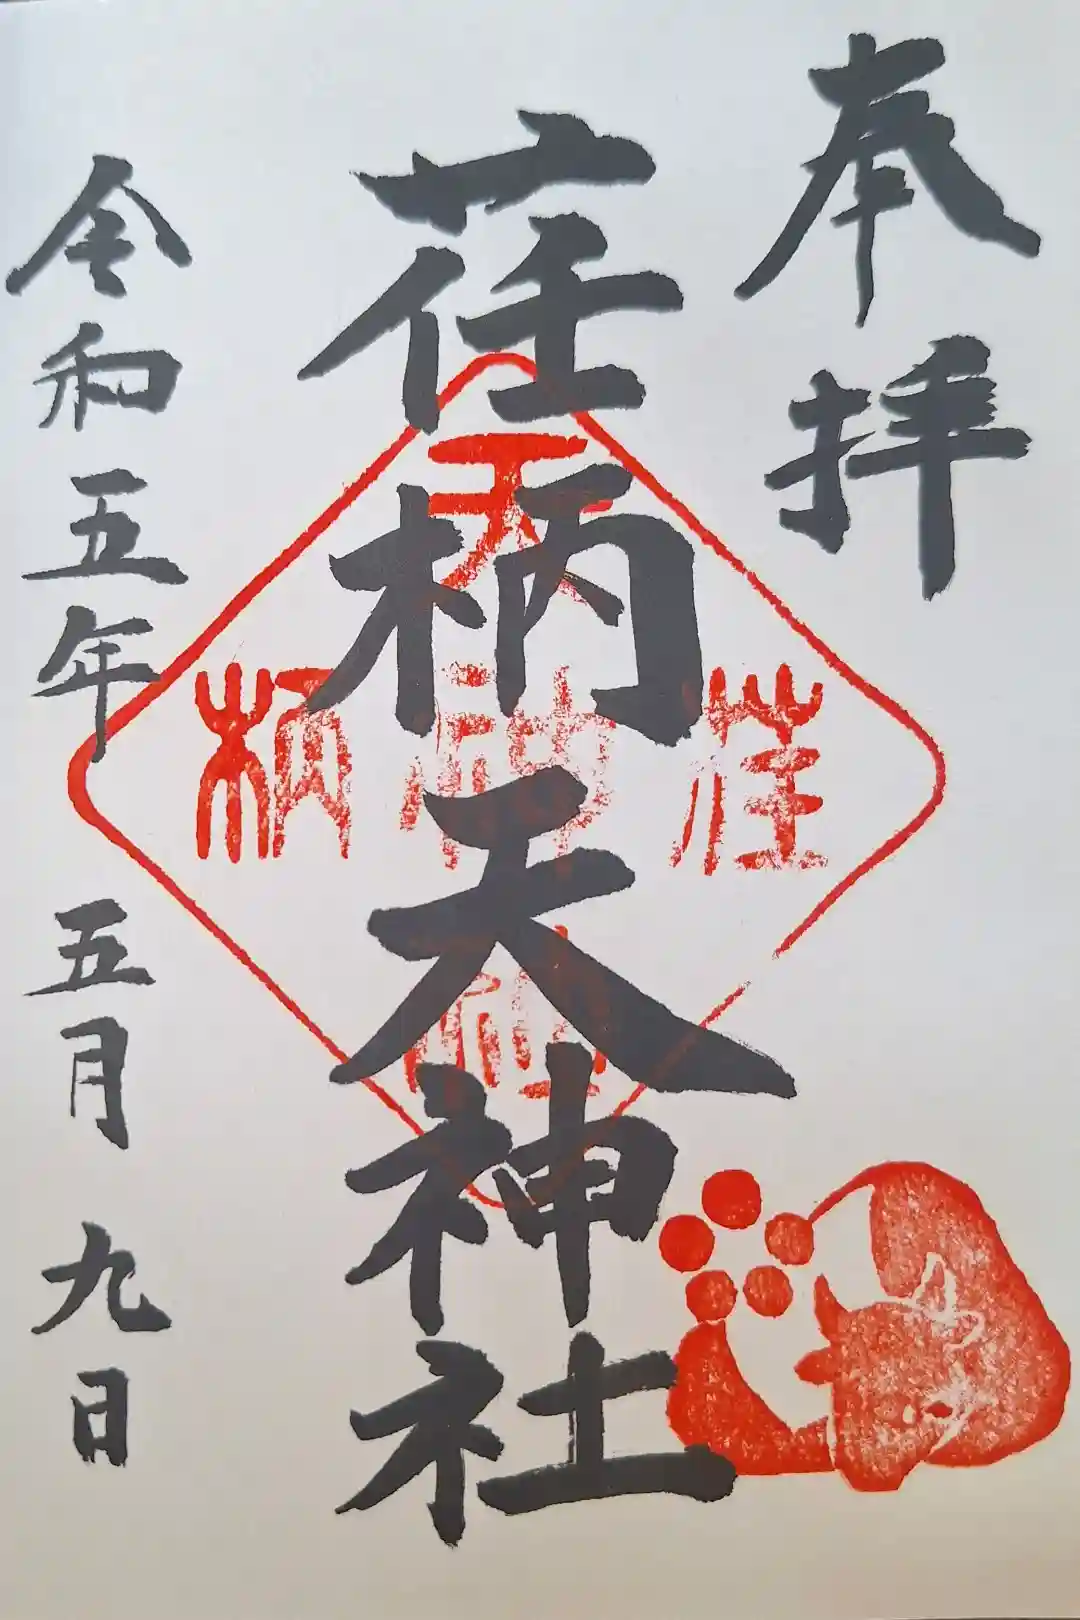 奉拝
荏柄天神社
令和五年 五月 九日
天
荏神柄
社